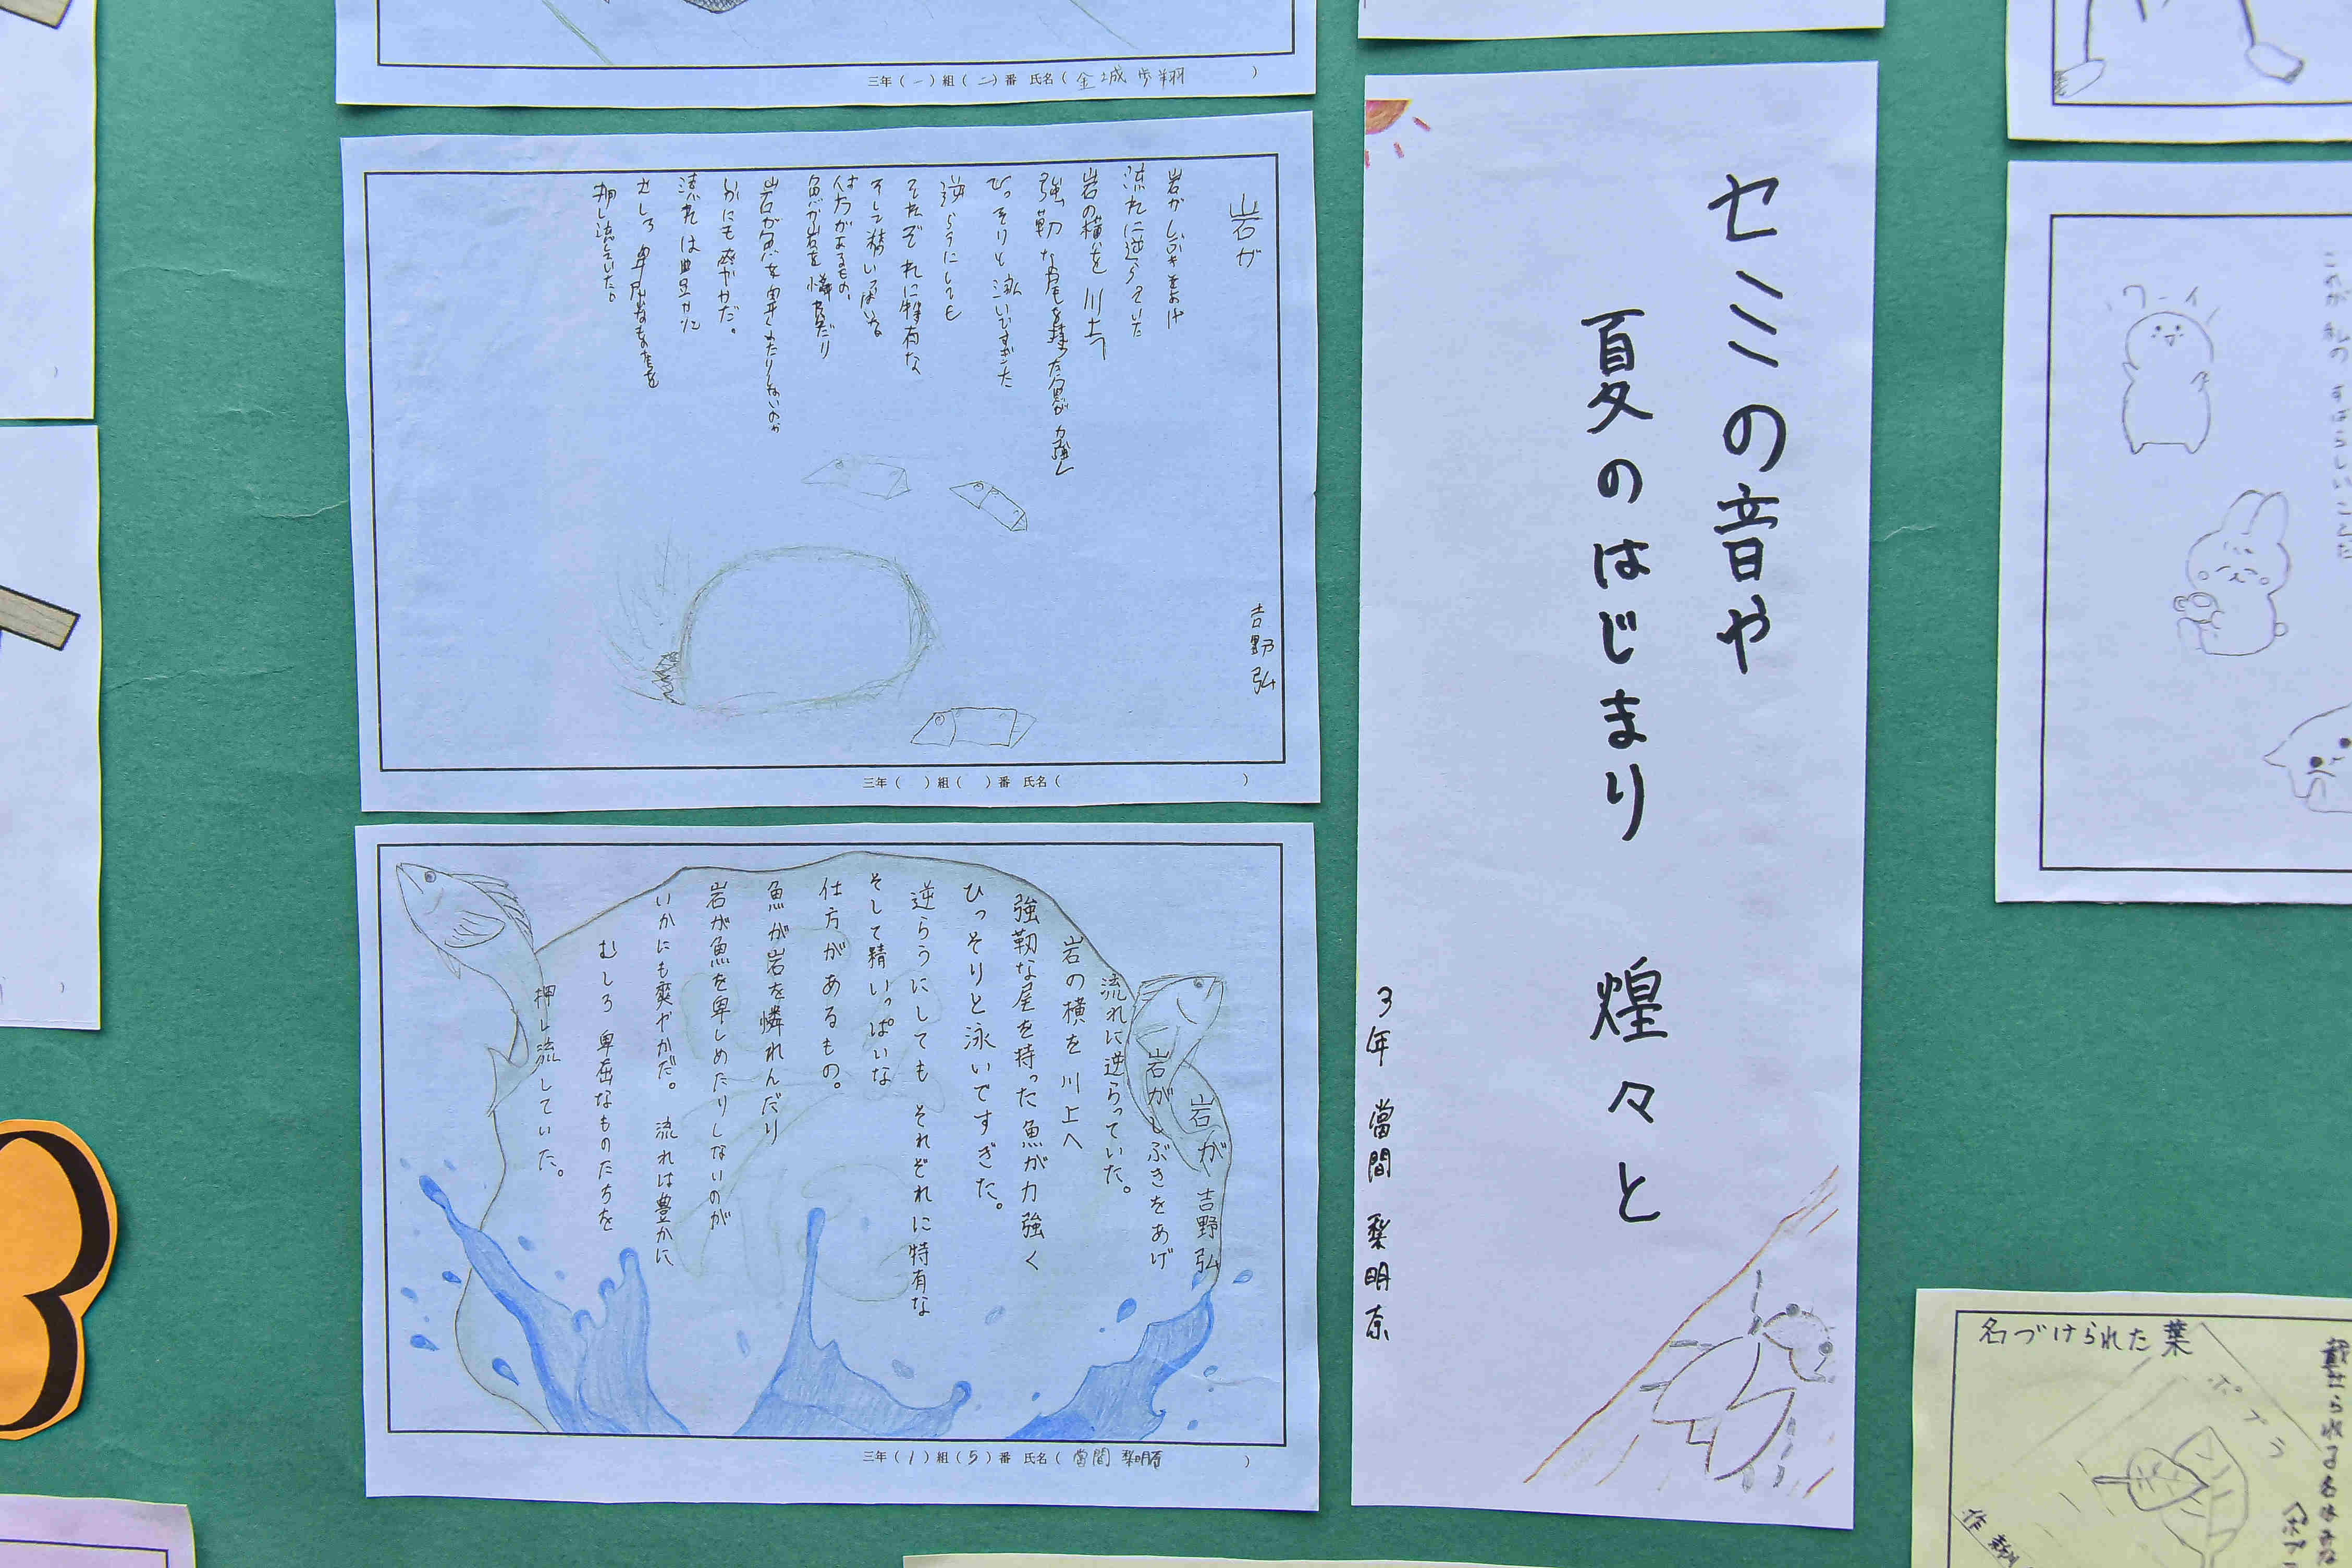 三年(一)組(二)番 氏名(金城 歩翔)
岩が
吉野弘
岩がしぶきをあげ
流れに逆らっていた
岩の横を 川上へ
強靭な尾を持った魚が 力強く
ひっそりと 泳いですぎた
逆らうにしても
それぞれに特有な
そして精いっぱいな
仕方があるもの。
魚が岩を憐れんだり
岩が魚を卑しめたりしないのが
いかにも爽やかだ。
流れは豊かに
むしろ 卑屈なものたちを
押し流していた。
三年( )組( )番 氏名( )
岩が 吉野弘
岩がしぶきをあげ
流れに逆らっていた。
岩の横を 川上へ
強靭な尾を持った魚が力強く
ひっそりと泳いですぎた。
逆らうにしても それぞれに特有な
そして精いっぱいな
仕方があるもの。
魚が岩を憐れんだり
岩が魚を卑しめたりしないのが
いかにも爽やかだ。 流れは豊かに
むしろ 卑屈なものたちを
押し流していた。
三年(1)組(5)番 氏名(當間 梨明奈)
セミの音や
夏のはじまり 煌々と
3年 當間 梨明奈
名づけられた葉
ポプラ